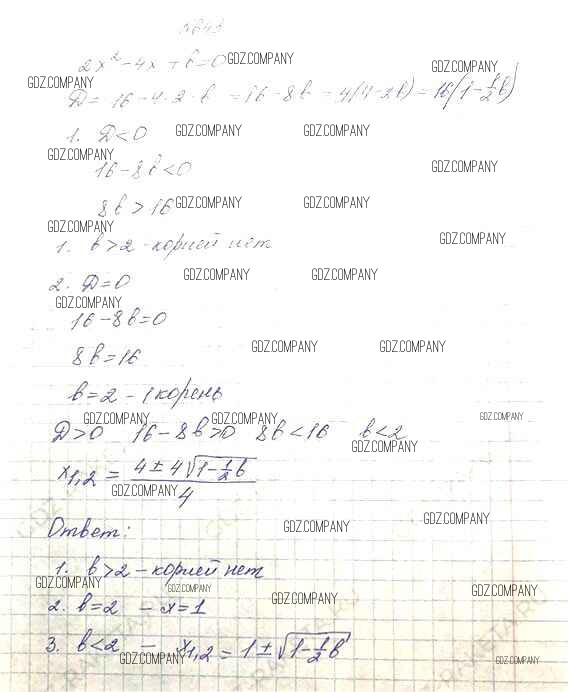 №643
2x² - 4x + b = 0 GDZ.COMPANY GDZ.COMPANY
GDZ.COMPANY
D = 16 - 4·2·b = 16 - 8b = 4(4-2b) = 16(1-½b)
1. D<0 GDZ.COMPANY GDZ.COMPANY
GDZ.COMPANY
16-8b<0 GDZ.COMPANY
8b>16 GDZ.COMPANY GDZ.COMPANY
GDZ.COMPANY
1. b>2 - корней нет GDZ.COMPANY
2. D=0 GDZ.COMPANY GDZ.COMPANY
GDZ.COMPANY
16-8b=0
8b=16 GDZ.COMPANY GDZ.COMPANY
b=2 - 1 корень
GDZ.COMPANY GDZ.COMPANY GDZ.COMPANY
D>0 16-8b>0 8b<16 b<2
GDZ.COMPANY
x₁,₂ = (4±4√(1-½b))/4
GDZ.COMPANY
Ответ: GDZ.COMPANY GDZ.COMPANY
1. b>2 - корней нет
GDZ.COMPANY GDZ.COMPANY GDZ.COMPANY
2. b=2 - x=1 GDZ.COMPANY
3. b<2 - x₁,₂ = 1±√(1-½b)
GDZ.COMPANY GDZ.COMPANY